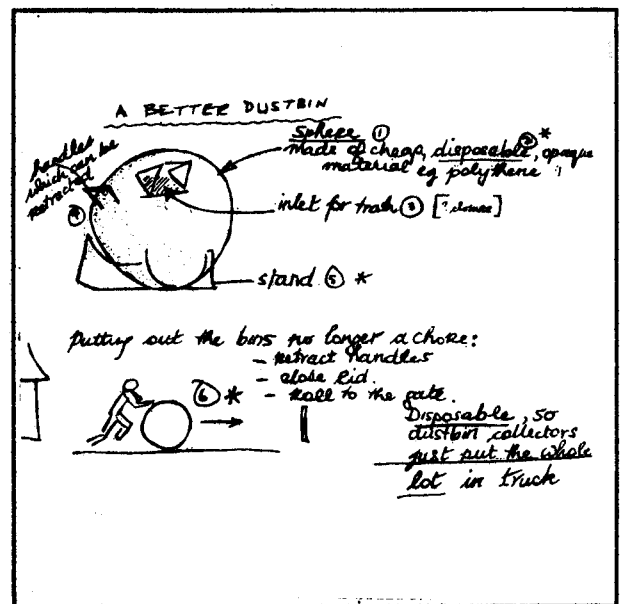 A BETTER DUSTBIN
handles
which can be
retracted
④
Sphere ①
made of cheap, disposable ② *, opaque
material eg polythene
inlet for trash ③ [? closure]
stand ⑤ *
Putting out the bins no longer a chore:
- retract handles
- close lid.
- roll to the gate.
⑥ *
Disposable, so
dustbin collectors
just put the whole
lot in truck